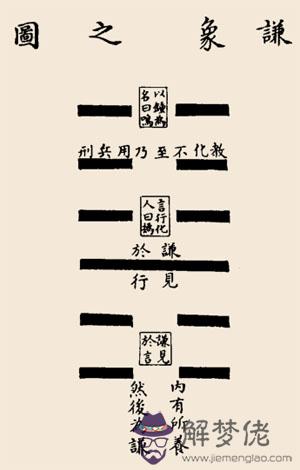 謙象之圖
以鐘為
名曰鳴
教化不至乃用兵刑
言行化
人曰撝
謙見
於行
謙見
於言
內有所養
然後為謙
解梦佬
www.jiemenglao.com